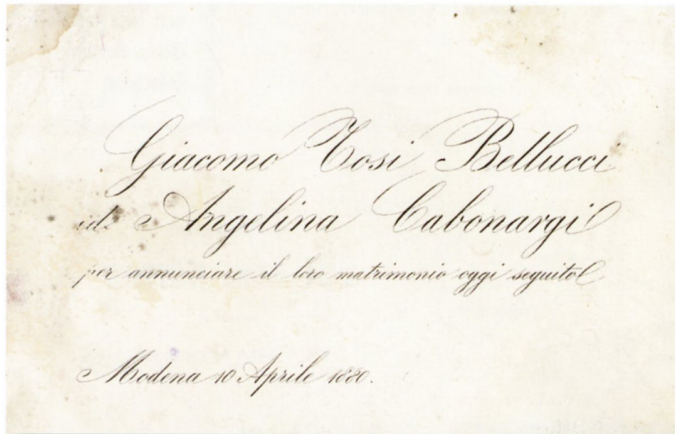 Giacomo Tosi Bellucci
ed Angelina Cabonargi
per annunciare il loro matrimonio oggi seguito
Modena 10 Aprile 1880.